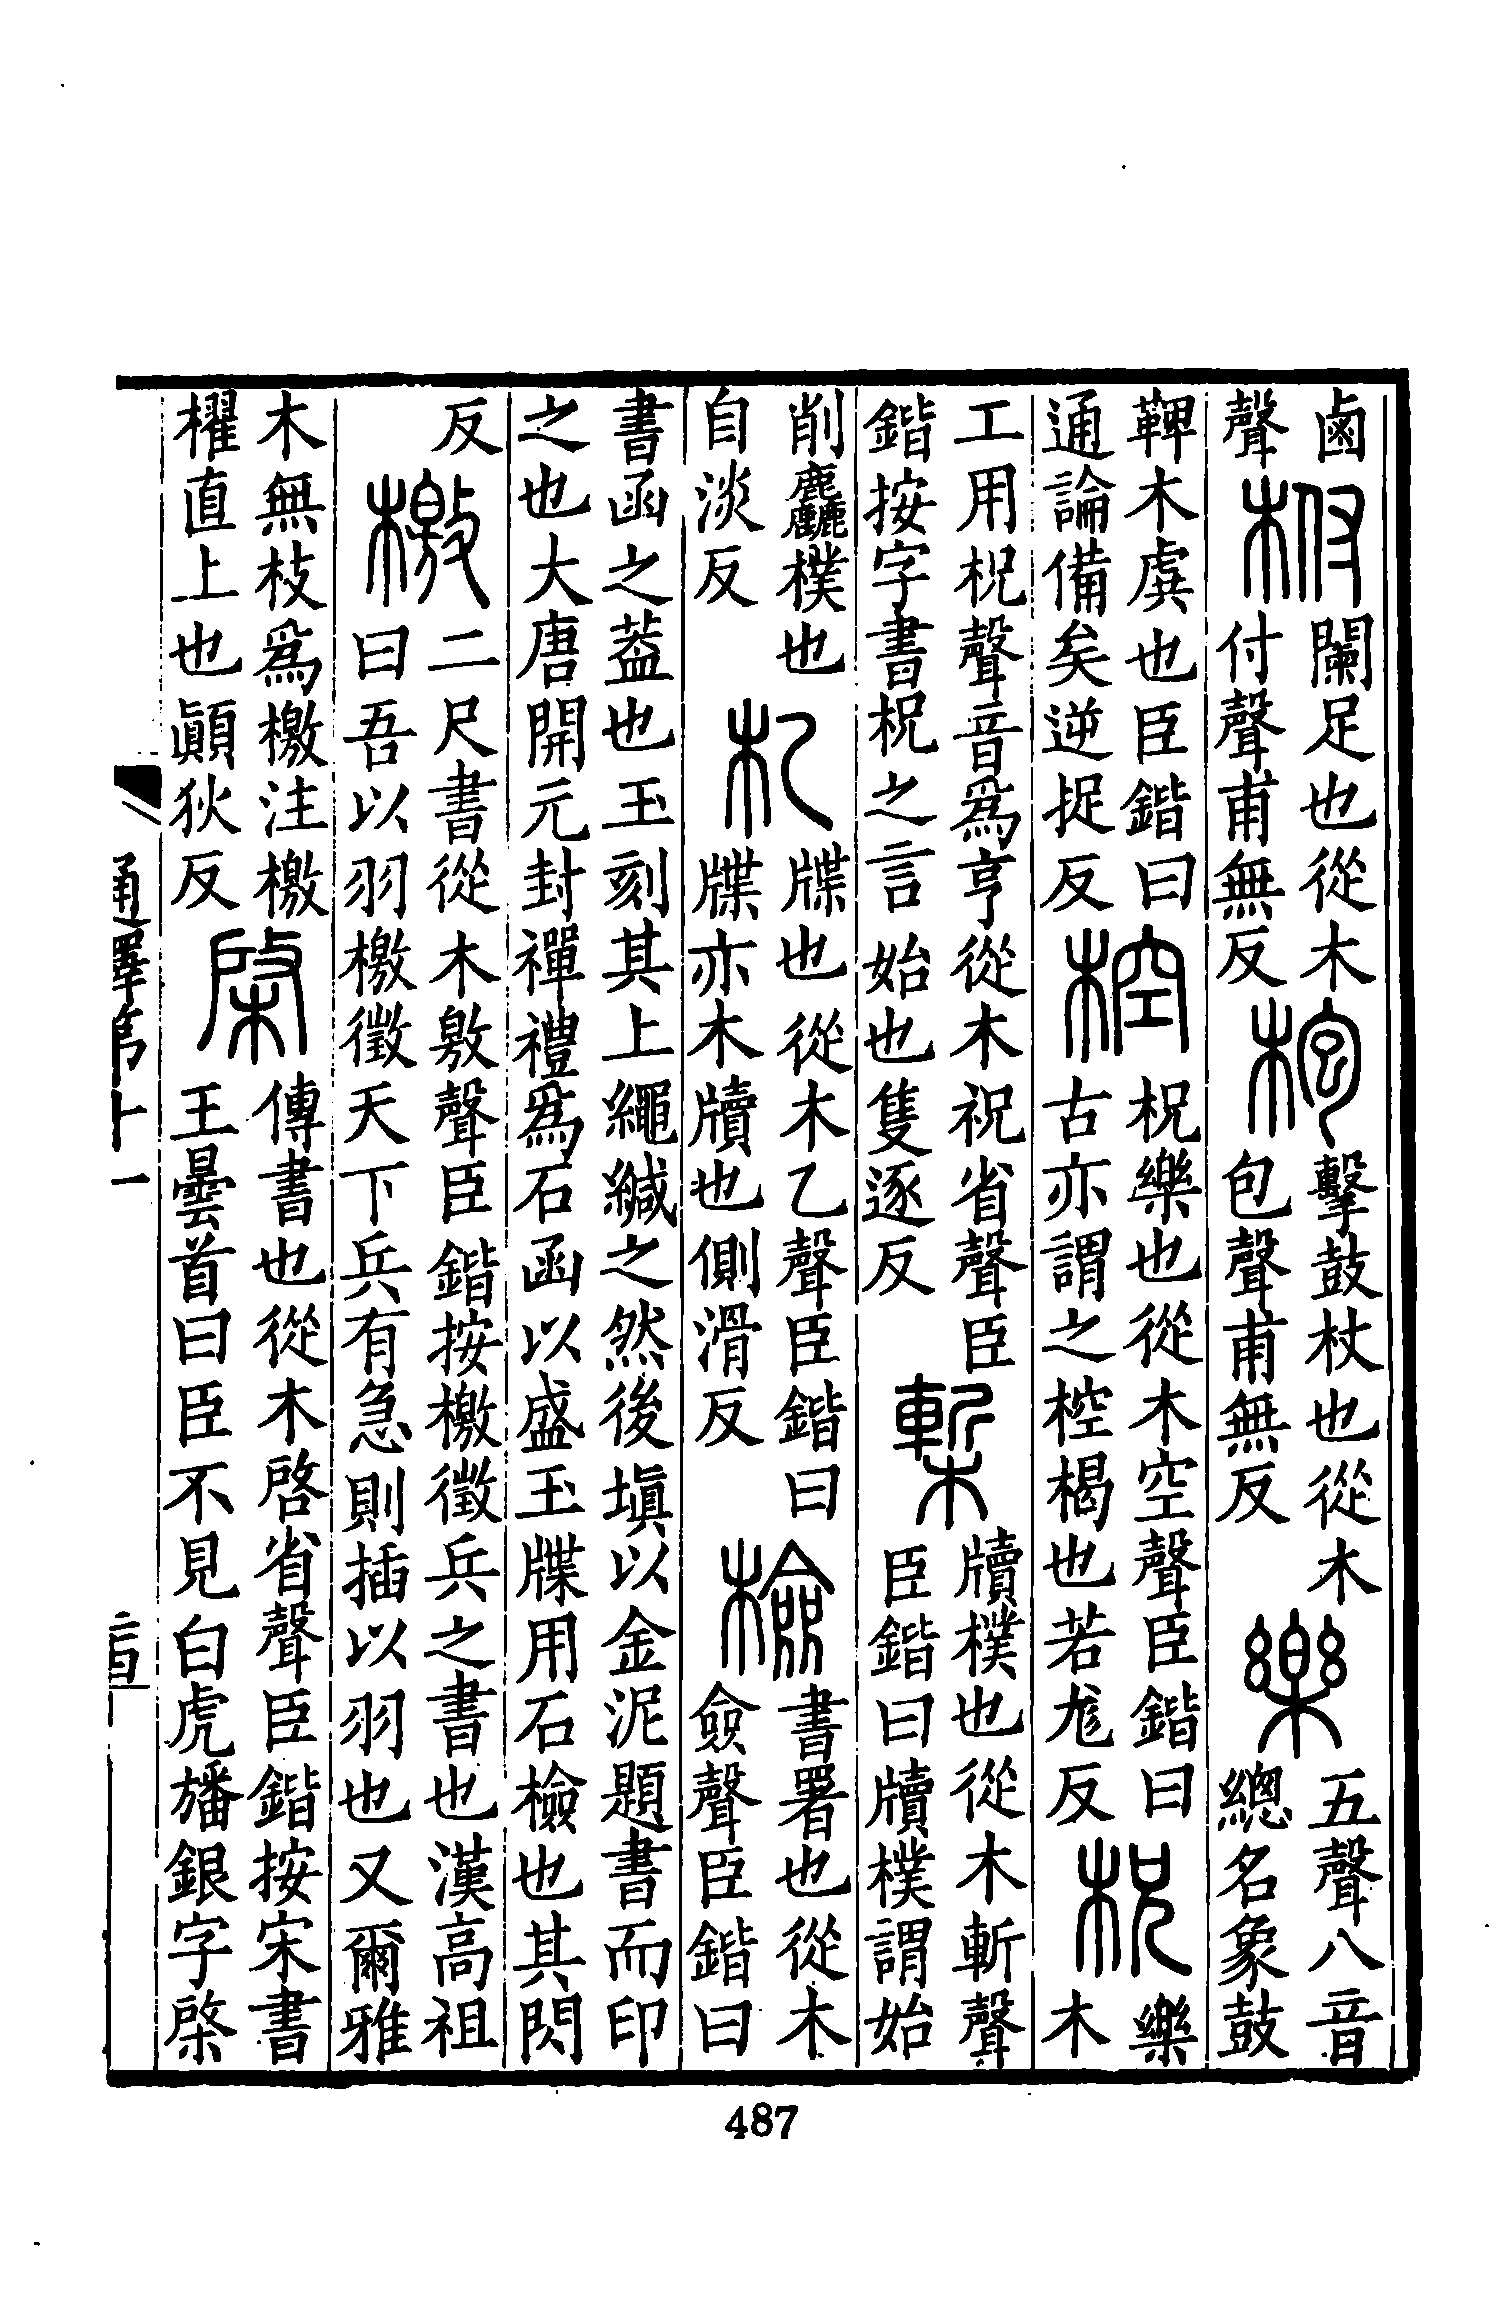 鹵聲柎闌足也從木付聲甫無反枹擊鼓杖也從木包聲甫無反樂五聲八音總名象鼓
鞞木虡也臣鍇曰通論備矣逆捉反椌柷樂也從木空聲臣鍇曰古亦謂之椌楬也若尨反柷樂木
工用柷聲音爲亨從木祝省聲臣鍇按字書柷之言始也隻逐反槧牘樸也從木斬聲臣鍇曰牘樸謂始
削麤樸也自淡反札牒也從木乙聲臣鍇曰牒亦木牘也側滑反檢書署也從木僉聲臣鍇曰
書函之葢也玉刻其上繩緘之然後塡以金泥題書而印之也大唐開元封禪禮爲石函以盛玉牒用石檢也其閃
反檄二尺書從木敫聲臣鍇按檄徵兵之書也漢高祖曰吾以羽檄徵天下兵有急則插以羽也又爾雅
木無枝爲檄注檄櫂直上也顚狄反棨傳書也從木啓省聲臣鍇按宋書王曇首曰臣不見白虎旛銀字棨
通釋第十一
487